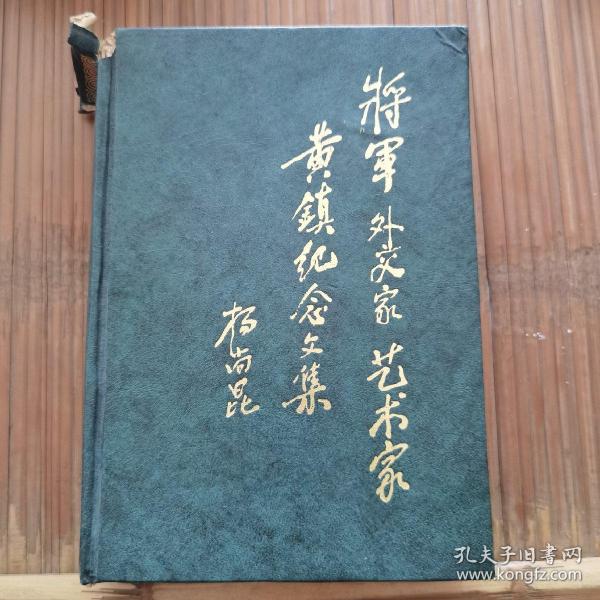 將軍 外交家 艺术家
黄鎮纪念文集
杨尚昆
孔夫子旧书网
www.kongfz.com